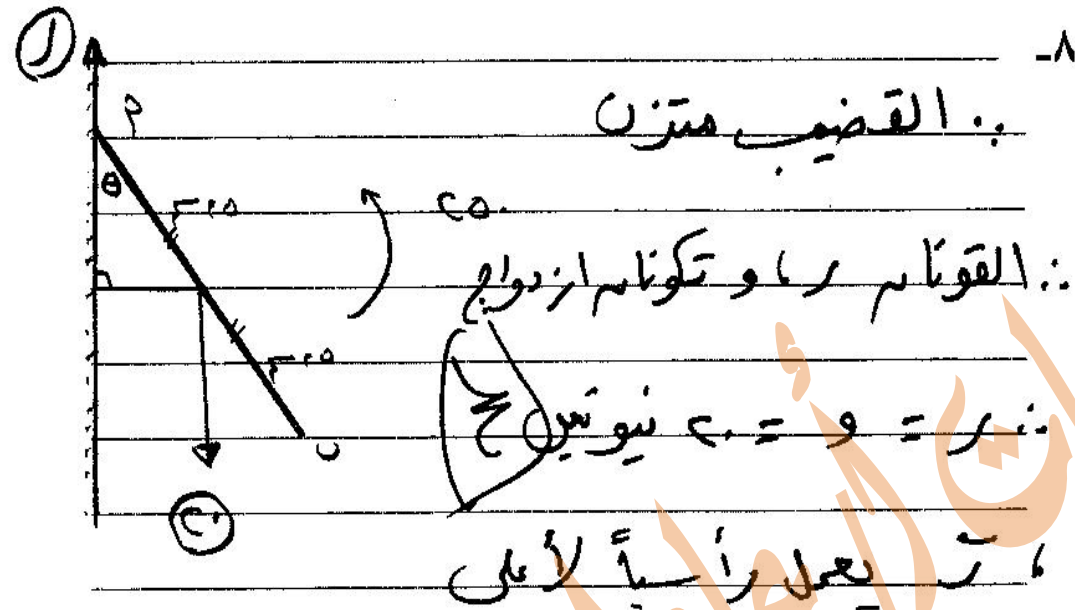 ٨-
∵ القضيب متزن
∴ القوتان ر ، و تكونان ازدواج
∴ ر = و = ٢٠ نيوتن
، ر يعمل رأسياً لأعلى
ر
م
θ
٢٥
٢٥٠
٢٥
ب
٢٠